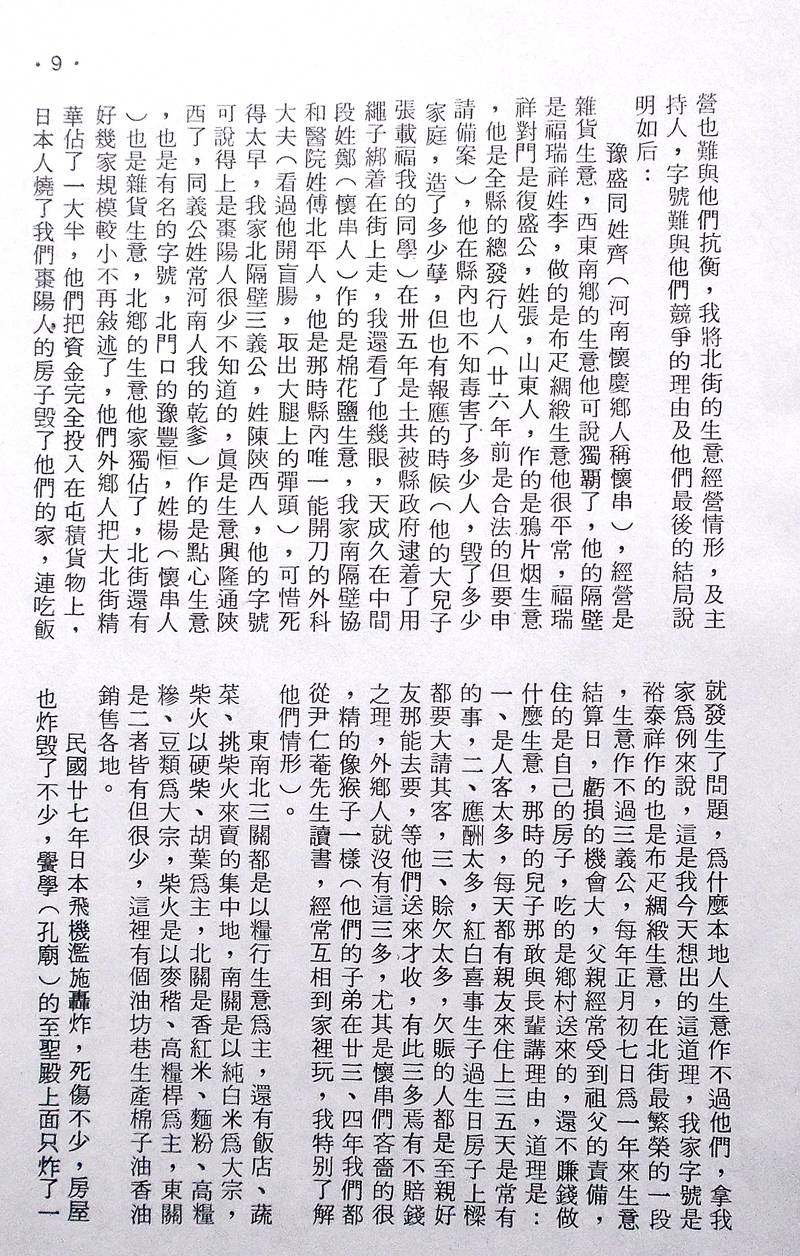 ·9·
營也難與他們抗衡，我將北街的生意經營情形，及主
持人，字號難與他們競爭的理由及他們最後的結局說
明如后：
豫盛同姓齊（河南懷慶鄉人稱懷串），經營是
雜貨生意，西東南鄉的生意他可說獨覇了，他的隔壁
是福瑞祥姓李，做的是布疋綢緞生意他很平常，福瑞
祥對門是復盛公，姓張，山東人，作的是鴉片烟生意
，他是全縣的總發行人（廿六年前是合法的但要申
請備案），他在縣內也不知毒害了多少人，毀了多少
家庭，造了多少孽，但也有報應的時候（他的大兒子
張載福我的同學）在卅五年是土共被縣政府逮着了用
繩子綁着在街上走，我還看了他幾眼，天成久在中間
段姓鄭（懷串人）作的是棉花鹽生意，我家南隔壁協
和醫院姓傅北平人，他是那時縣內唯一能開刀的外科
大夫（看過他開盲腸，取出大腿上的彈頭），可惜死
得太早，我家北隔壁三義公，姓陳陝西人，他的字號
可說得上是棗陽人很少不知道的，眞是生意興隆通陝
西了，同義公姓常河南人我的乾爹）作的是點心生意
，也是有名的字號，北門口的豫豐恒，姓楊（懷串人
）也是雜貨生意，北鄉的生意他家獨佔了，北街還有
好幾家規模較小不再敍述了，他們外鄉人把大北街精
華佔了一大半，他們把資金完全投入在屯積貨物上，
日本人燒了我們棗陽人的房子毀了他們的家，連吃飯
就發生了問題，爲什麼本地人生意作不過他們，拿我
家爲例來說，這是我今天想出的這道理，我家字號是
裕泰祥作的也是布疋綢緞生意，在北街最繁榮的一段
，生意作不過三義公，每年正月初七日爲一年來生意
結算日，虧損的機會大，父親經常受到祖父的責備，
住的是自己的房子，吃的是鄉村送來的，還不賺錢做
什麼生意，那時的兒子那敢與長輩講理由，道理是：
一、是人客太多，每天都有親友來住上三五天是常有
的事，二、應酬太多，紅白喜事生子過生日房子上樑
都要大請其客，三、賒欠太多，欠賬的人都是至親好
友那能去要，等他們送來才收，有此三多焉有不賠錢
之理，外鄉人就沒有這三多，尤其是懷串們吝嗇的很
，精的像猴子一樣（他們的子弟在廿三、四年我們都
從尹仁菴先生讀書，經常互相到家裡玩，我特别了解
他們情形）。
東南北三關都是以糧行生意爲主，還有飯店、蔬
菜、挑柴火來賣的集中地，南關是以純白米爲大宗，
柴火以硬柴、胡葉爲主，北關是香紅米、麵粉、高糧
糝、豆類爲大宗，柴火是以麥稭、高糧桿爲主，東關
是二者皆有但很少，這裡有個油坊巷生產棉子油香油
銷售各地。
民國廿七年日本飛機濫施轟炸，死傷不少，房屋
也炸毀了不少，黌學（孔廟）的至聖殿上面只炸了一